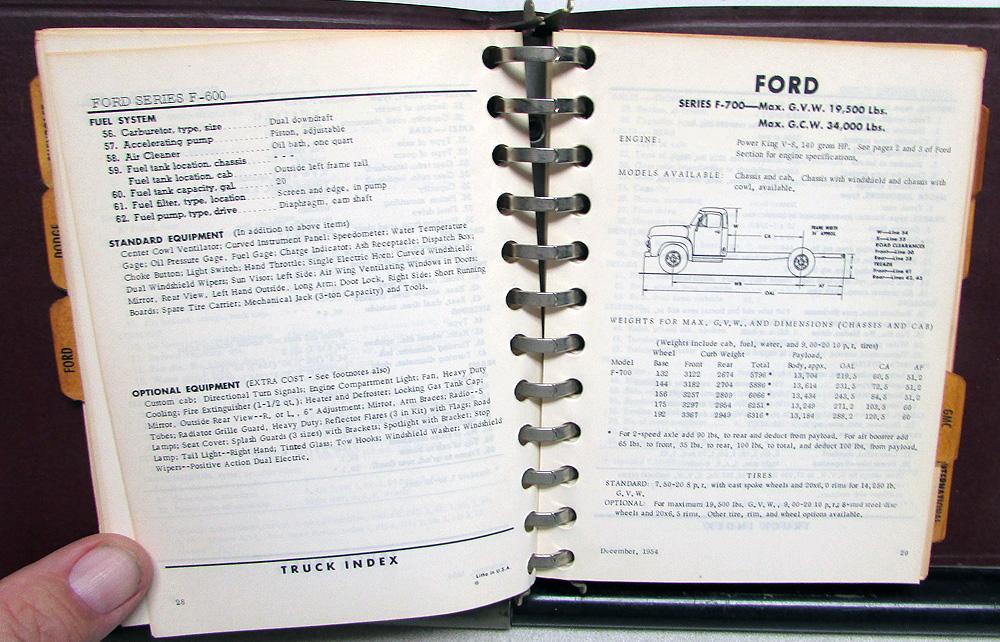 FORD SERIES F-600
FUEL SYSTEM
56. Carburetor, type, size ........ Dual downdraft
57. Accelerating pump ........ Piston, adjustable
58. Air Cleaner ........ Oil bath, one quart
59. Fuel tank location, chassis ........ - - -
Fuel tank location, cab ........ Outside left frame rail
60. Fuel tank capacity, gal. ........ 20
61. Fuel filter, type, location ........ Screen and edge, in pump
62. Fuel pump, type, drive ........ Diaphragm, cam shaft
STANDARD EQUIPMENT (In addition to above items)
Center Cowl Ventilator; Curved Instrument Panel; Speedometer; Water Temperature
Gage; Oil Pressure Gage, Fuel Gage; Charge Indicator; Ash Receptacle; Dispatch Box;
Choke Button; Light Switch; Hand Throttle; Single Electric Horn; Curved Windshield;
Dual Windshield Wipers; Sun Visor; Left Side; Air Wing Ventilating Windows in Doors;
Mirror, Rear View, Left Hand Outside, Long Arm; Door Lock, Right Side; Short Running
Boards; Spare Tire Carrier; Mechanical Jack (3-ton Capacity) and Tools.
OPTIONAL EQUIPMENT (EXTRA COST - See footnotes also)
Custom cab; Directional Turn Signals; Engine Compartment Light; Fan, Heavy Duty
Cooling; Fire Extinguisher (1-1/2 qt.); Heater and Defroster; Locking Gas Tank Cap;
Mirror, Outside Rear View--R. or L., 6" Adjustment; Mirror, Arm Braces; Radio--5
Tubes; Radiator Grille Guard, Heavy Duty; Reflector Flares (3 in Kit) with Flags; Road
Lamps; Seat Cover; Splash Guards (3 sizes) with Brackets; Spotlight with Bracket; Stop
Lamp; Tail Light--Right Hand; Tinted Glass; Tow Hooks; Windshield Washer; Windshield
Wipers--Positive Action Dual Electric.
TRUCK INDEX
Litho in U.S.A.
©
28
DODGE
FORD
FORD
SERIES F-700—Max. G.V.W. 19,500 Lbs.
Max. G.C.W. 34,000 Lbs.
ENGINE: Power King V-8, 140 gross HP. See pages 2 and 3 of Ford
Section for engine specifications.
MODELS AVAILABLE: Chassis and cab, Chassis with windshield and chassis with
cowl, available.
FRAME WIDTH
34" APPROX.
W
CA
WB
AF
OAL
W—Line 54
X—Line 53
ROAD CLEARANCES
Front—Line 30
Rear—Line 38
TREADS
Front—Line 41
Rear—Lines 42, 43
WEIGHTS FOR MAX. G.V.W., AND DIMENSIONS (CHASSIS AND CAB)
(Weights include cab, fuel, water, and 9.00-20 10 p.r. tires)
Wheel Curb Weight Payload,
Model Base Front Rear Total Body, approx. OAL CA AF
F-700 132 3122 2674 5796* 13,704 219.5 60.5 51.2
144 3182 2704 5886* 13,614 231.5 72.5 51.2
156 3257 2809 6066* 13,434 243.5 84.5 51.2
175 3297 2954 6251* 13,249 271.2 103.5 60
192 3367 2949 6316* 13,184 288.2 120.5 60
* For 2-speed axle add 90 lbs. to rear and deduct from payload. For air booster add
65 lbs. to front, 35 lbs. to rear, 100 lbs. to total, and deduct 100 lbs. from payload.
TIRES
STANDARD: 7.50-20 8 p.r. with cast spoke wheels and 20x6.0 rims for 14,250 lb.
G.V.W.
OPTIONAL: For maximum 19,500 lbs. G.V.W., 9.00-20 10 p.r.; 8-stud steel disc
wheels and 20x6.5 rims. Other tire, rim, and wheel options available.
December, 1954
29
GMC
INTERNATIONAL